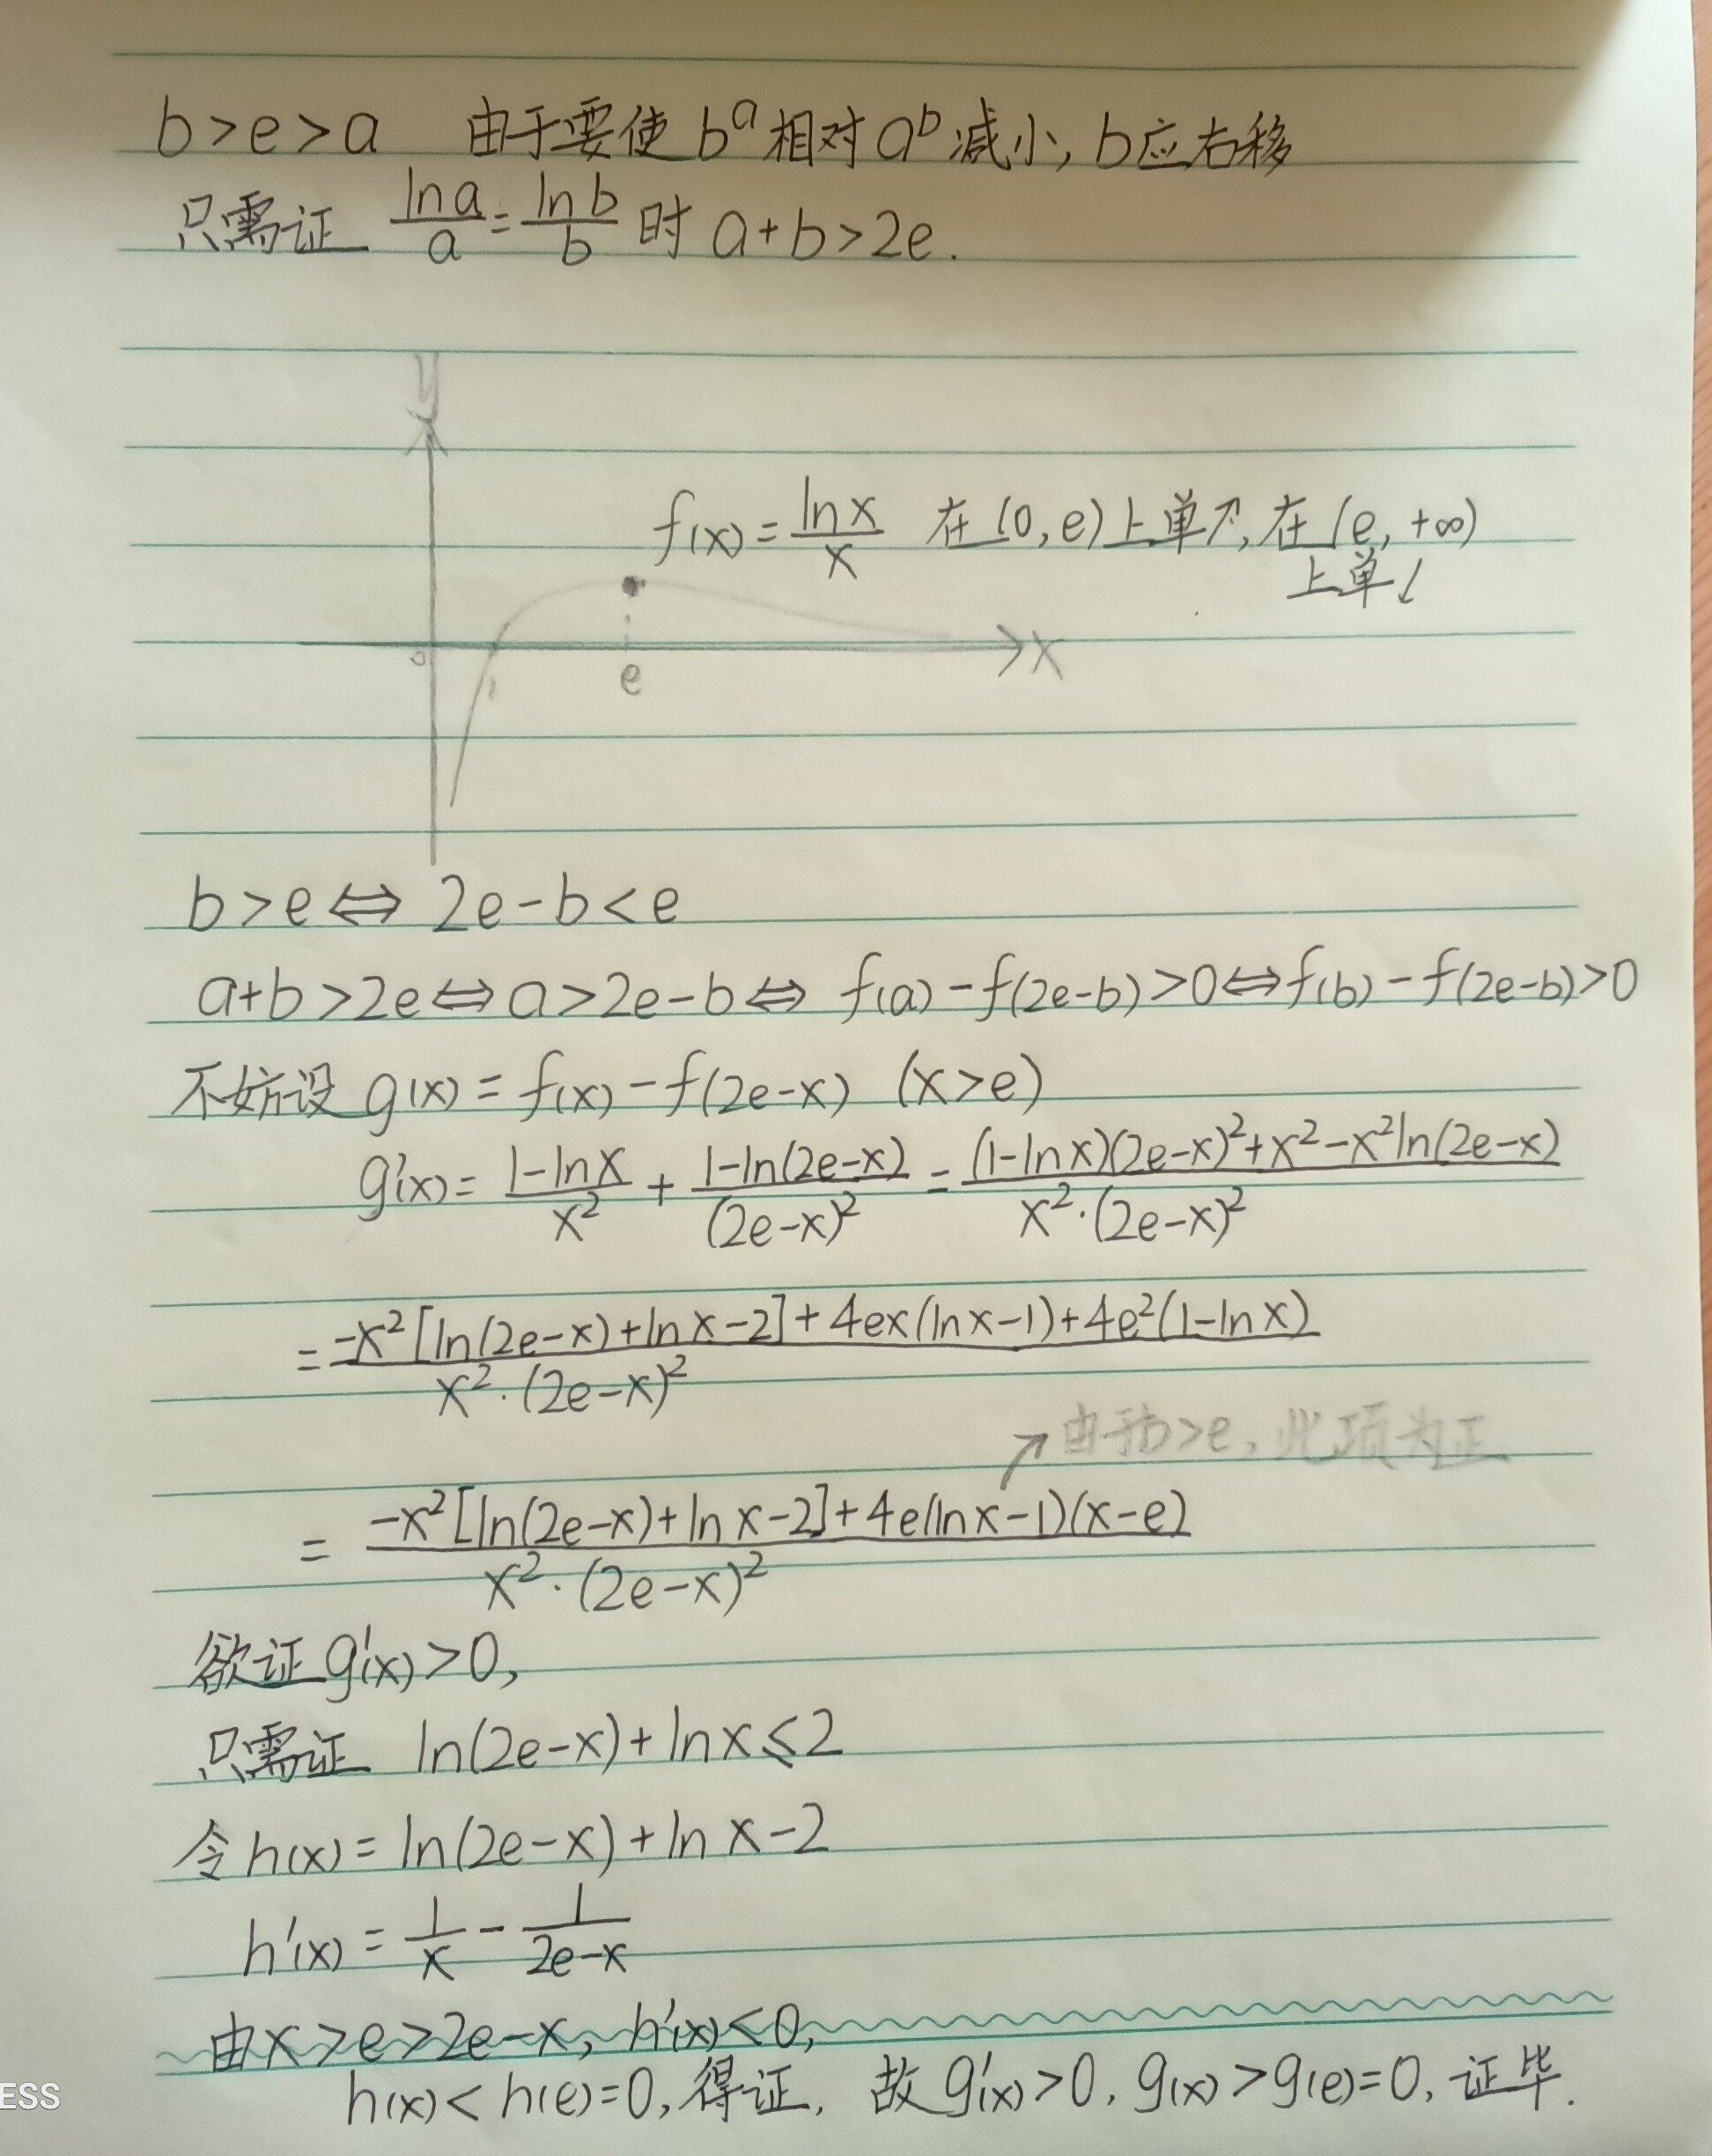 b>e>a 由于要使 b^a 相对 a^b 减小, b应右移
只需证 lna/a = lnb/b 时 a+b>2e.
y
f(x)=lnx/x 在(0,e)上单↗,在(e,+∞)
上单↙
0 1 e x
b>e⇔2e-b<e
a+b>2e⇔a>2e-b⇔f(a)-f(2e-b)>0⇔f(b)-f(2e-b)>0
不妨设 g(x)=f(x)-f(2e-x) (x>e)
g'(x)=(1-lnx)/x²+(1-ln(2e-x))/(2e-x)²=((1-lnx)(2e-x)²+x²-x²ln(2e-x))/(x²·(2e-x)²)
=(-x²[ln(2e-x)+lnx-2]+4ex(lnx-1)+4e²(1-lnx))/(x²·(2e-x)²)
↗由于b>e,此项为正
=(-x²[ln(2e-x)+lnx-2]+4e(lnx-1)(x-e))/(x²·(2e-x)²)
欲证g'(x)>0,
只需证 ln(2e-x)+lnx≤2
令h(x)=ln(2e-x)+lnx-2
h'(x)=1/x-1/(2e-x)
由x>e>2e-x, h'(x)<0,
h(x)<h(e)=0,得证. 故g'(x)>0,g(x)>g(e)=0,证毕.
ESS